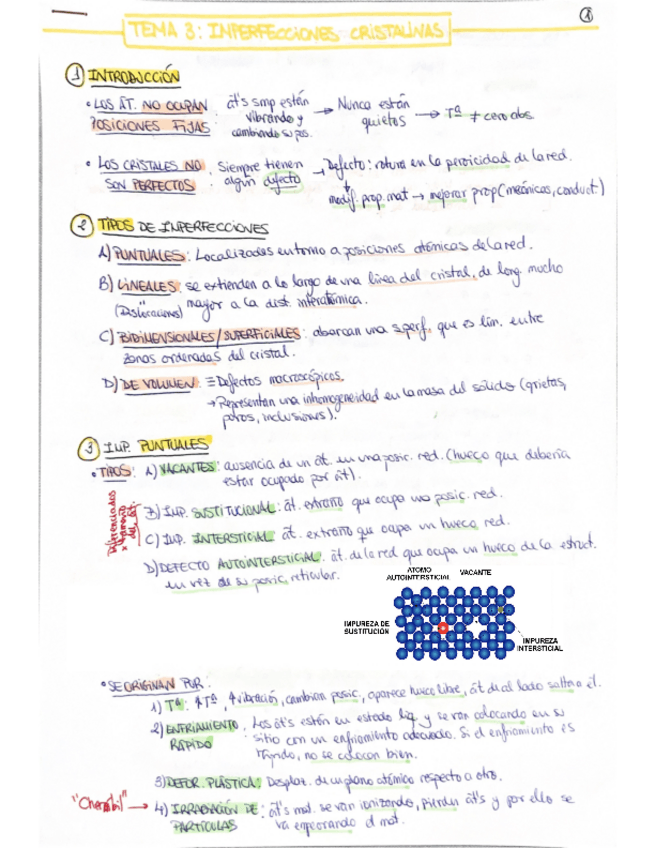 TEMA 3: IMPERFECCIONES CRISTALINAS
1
1 INTRODUCCIÓN
• LOS ÁT. NO OCUPAN POSICIONES FIJAS: át's smp están vibrando y cambiando su pos. → Nunca están quietos → Tª ≠ cero abs.
• LOS CRISTALES NO SON PERFECTOS: Siempre tienen algún defecto → Defecto: rotura en la peroicidad de la red.
modif. prop. mat → mejorar prop (mecánicas, conduct.)
2 TIPOS DE IMPERFECCIONES
A) PUNTUALES: Localizados entorno a posiciones atómicas de la red.
B) LINEALES: se extienden a lo largo de una línea del cristal, de long. mucho
(Dislocaciones) mayor a la dist. interatómica.
C) BIDIMENSIONALES/SUPERFICIALES: abarcan una superf. que es lím. entre
zonas ordenadas del cristal.
D) DE VOLUMEN ≡ Defectos macroscópicos.
→ Representan una inhomogeneidad en la masa del sólido (grietas,
poros, inclusiones).
3 IMP. PUNTUALES
• TIPOS: A) VACANTES: ausencia de un át. en una posic. red. (hueco que debería
estar ocupado por át).
Diferenciados x tamaño del át.
B) IMP. SUSTITUCIONAL: át. extraño que ocupa una posic. red.
C) IMP. INTERSTICIAL át. extraño que ocupa un hueco red.
D) DEFECTO AUTOINTERSTICIAL. át. de la red que ocupa un hueco de la estruct.
en vez de su posic. reticular.
ATOMO AUTOINTERSTICIAL
VACANTE
IMPUREZA DE SUSTITUCION
IMPUREZA INTERSTICIAL
• SE ORIGINAN POR:
1) Tª: ↑Tª, ↑vibración, cambian posic, aparece hueco libre, át de al lado salta a él.
2) ENFRIAMIENTO RÁPIDO: Los át's están en estado líq. y se van colocando en su
sitio con un enfriamiento adecuado. Si el enfriamiento es
rápido, no se colocan bien.
3) DEFOR. PLÁSTICA: Desplaz. de un plano atómico respecto a otro.
"Chernóbil" → 4) IRRADIACIÓN DE PARTÍCULAS: át's mat. se van ionizando, pierden át's y por ello se
va empeorando el mat.